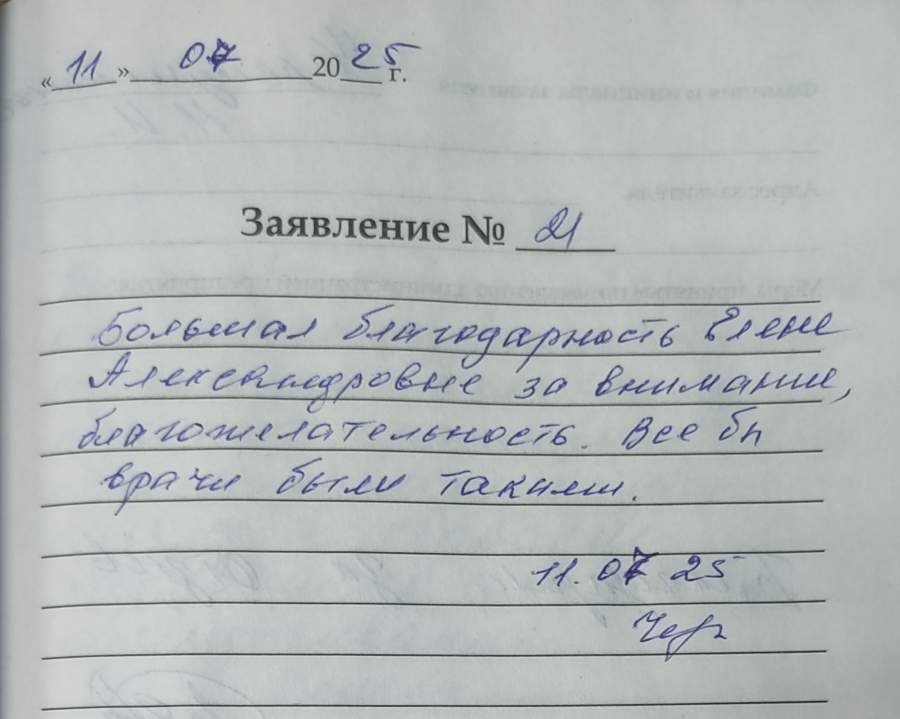 «11» 07 2025 г.
Заявление № 21
Большая благодарность Елене
Александровне за внимание,
благожелательность. Все бы
врачи были такими.
11.07 25